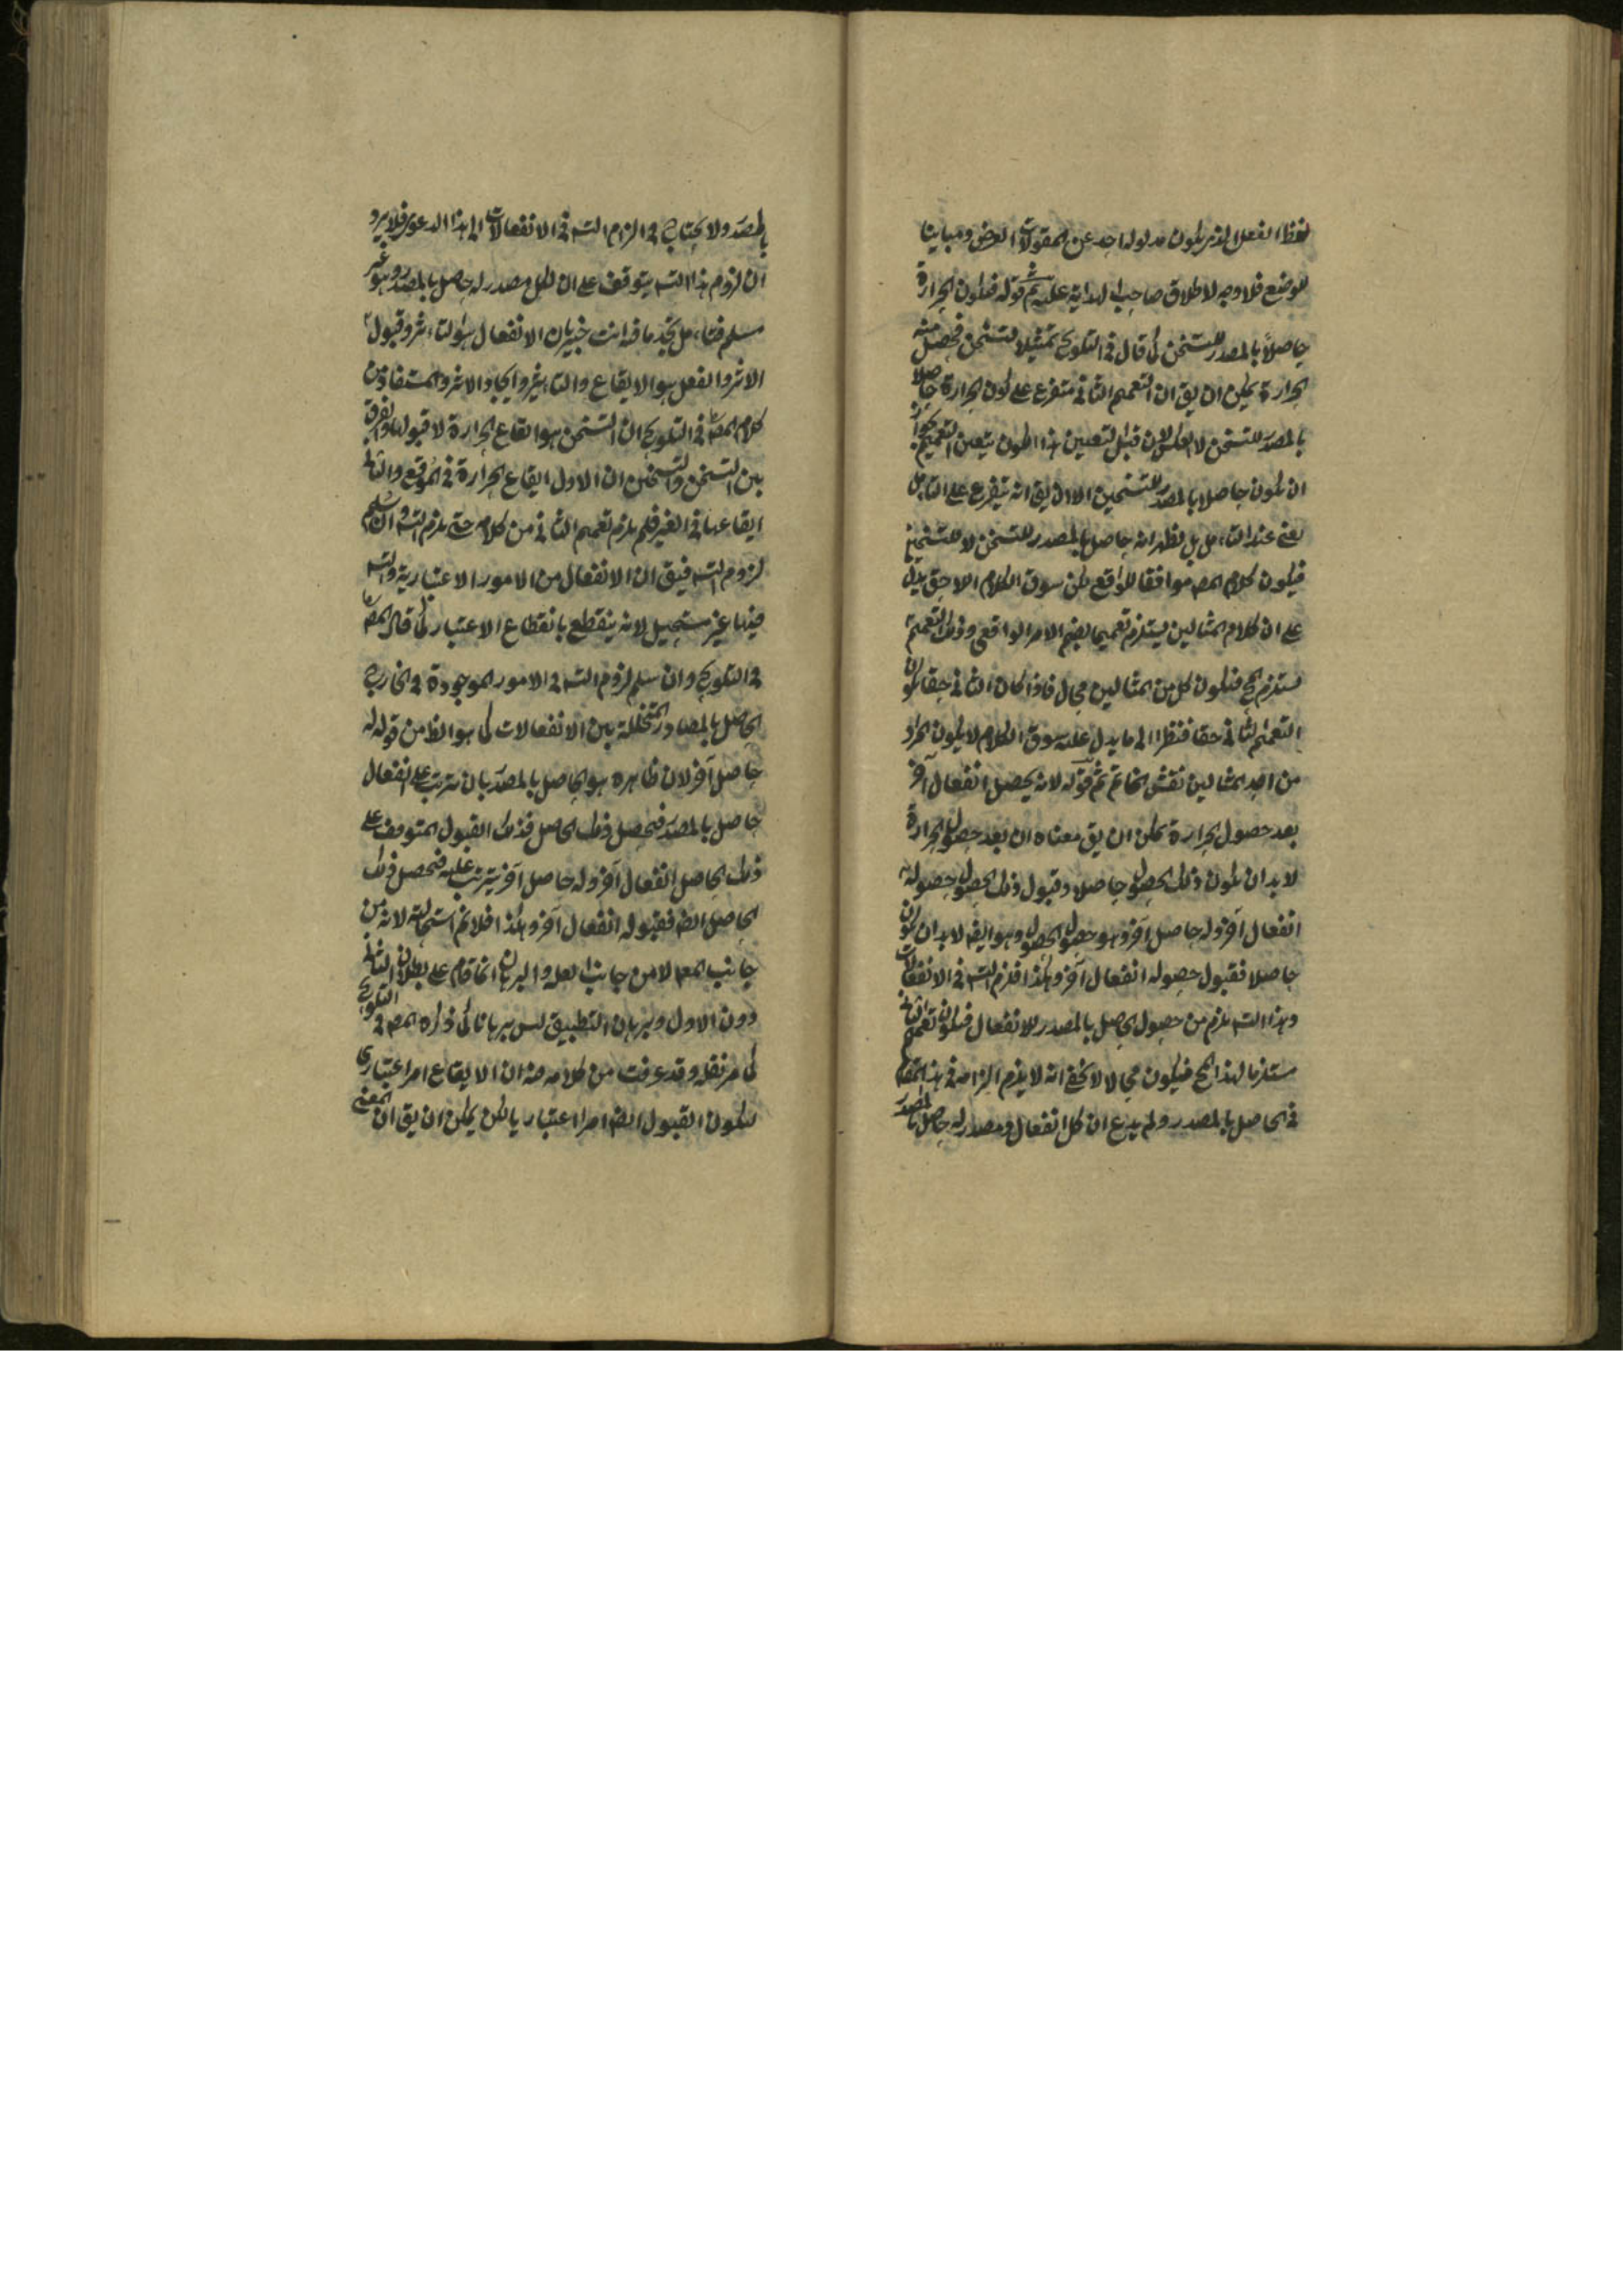 لفظ الفعل الذى يكون مدلوله احد عن المقولات العرض ومباينا
للوضع فلا وجه لاطلاق صاحب الهداية عليه ثم قوله فيكون الحرارة
حاصلاً بالمصدر للتسخن كما قال فى التلويح تمثيلا لتسخن فحصل منه
الحرارة يمكن ان يق ان التعميم الثانى متفرع على كون الحرارة حاصلا
بالمصدر للتسخن لا بالعكس لان قبل لتعيين هذا الكون يتعين التعميم
ان تكون حاصلا بالمصدر للتسخين الا ان يق انه يتفرع على التأمل
يعنى عند التأمل بل يظهر انه حاصل بالمصدر للتسخن لا للتسخين
فيكون كلام المص موافقا للواقع لكن سوق الكلام اللاحق يدل
على ان كلام المثالين يستلزم تعميما بضم الامر الواقعى وذلك التعميم
مستلزم المح فيكون كل من المثالين محال فاذا كان الثانى حقا يكون
التعميم الثانى حقا فنظرا الى ما يدل عليه سوق الكلام لا يكون المراد
من احد المثالين نقش الخاتم ثم قوله لانه يحصل انفعال آخر
بعد حصول الحرارة يمكن ان يق معناه ان بعد حصول الحرارة
لا بد ان يكون ذلك الحصول حاصلا وقبول ذلك الحصول حصوله
انفعال آخر وله حاصل آخر وهو حصول الحصول وهو ايض لا بد ان يكون
حاصلا فقبول حصوله انفعال آخر وهكذا فلزم التس فى الانفعالات
وهذا التس يلزم من حصول الحاصل بالمصدر للانفعال فيكون تعميم الثانى
مستلزما لهذا المح فيكون محالا لا يخفى انه لا يلزم الزامه فى هذا المقام
فى الحاصل بالمصدر ولم يدع ان كل انفعال ومصدر له حاصل بالمصدر
بالمصدر ولا يحتاج فى الزام التس فى الانفعالات الى هذا الدعوى فلا يرد
ان لزوم هذا التس يتوقف على ان لكل مصدر له حاصل بالمصدر وهو غير
مسلم فتأمل تجد ما فيه انت خبير بان الانفعال هو التأثر وقبول
الاثر والفعل هو الايقاع والتأثير وايجاد الاثر والمستفاد من
كلام المص فى التلويح ان التسخن هو ايقاع الحرارة لا قبولها والفرق
بين التسخن والتسخين ان الاول ايقاع الحرارة فى الموقع والثانى
ايقاعها فى الغير فلم يلزم تعميم الثانى من كلامه حتى يلزم التس وان سلم
لزوم التس فيق ان الانفعال من الامور الاعتبارية والتس
فيها غير مستحيل لانه ينقطع بانقطاع الاعتبار كما قال المص
فى التلويح وان سلم لزوم التس فى الامور الموجودة فى الخارج
الحاصل بالمصادر المتخللة بين الانفعالات كما هو الظ من قوله له
حاصل آخر لان ظاهره هو الحاصل بالمصدر بان يترتب على انفعال
حاصل بالمصدر فحصل ذلك الحاصل فذلك القبول المتوقف على
ذلك الحاصل انفعال آخر وله حاصل آخر يترتب عليه فحصل ذلك
الحاصل ايض فقبوله انفعال آخر وهكذا فلا نم استحالته لانه من
جانب المعه لا من جانب العله والبرهان انما قام على بطلان الثانى
دون الاول وبرهان التطبيق ليس برهانا كما ذكره المص فى التلويح
كما مر نقله وقد عرفت من كلامه منه ان الايقاع امر اعتبارى
فيكون القبول ايض امرا اعتباريا لكن يمكن ان يق ان المعنى